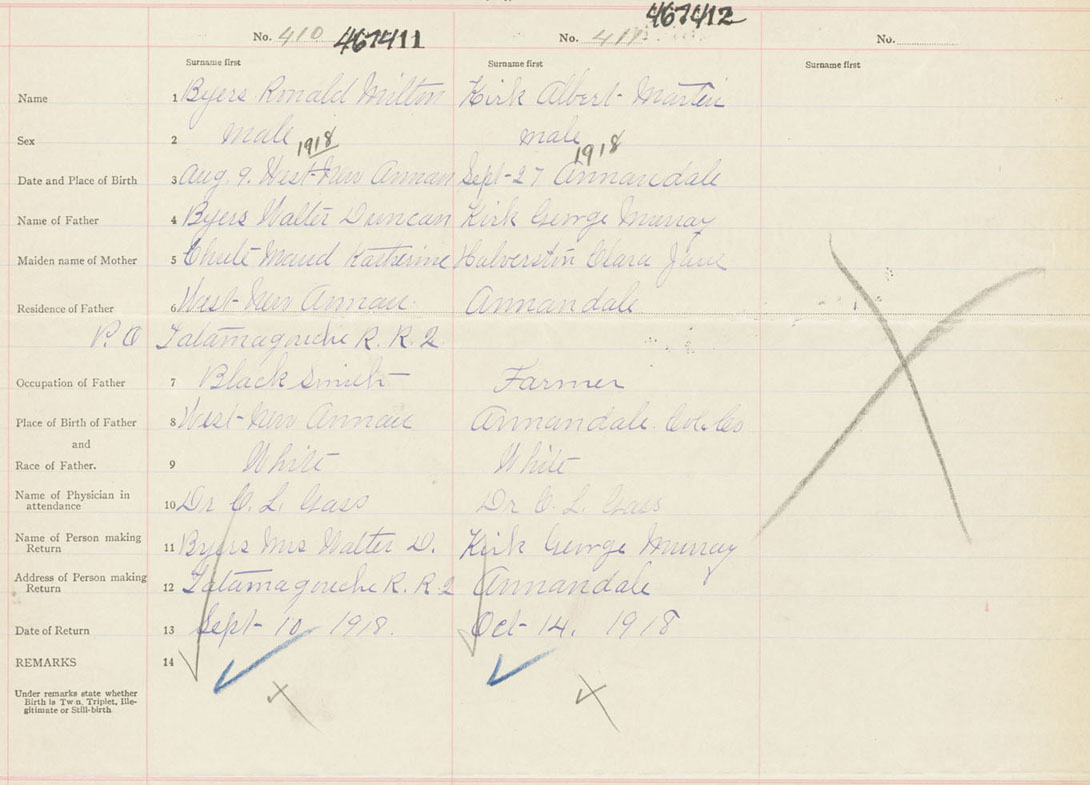 467412
No. 410 467411 No. 411 No.
Surname first Surname first Surname first
Name 1 Byers Ronald Milton Kirk Albert Martin
Sex 2 Male male
1918 1918
Date and Place of Birth 3 Aug. 9. West New Annan Sept 27 Annandale
Name of Father 4 Byers Walter Duncan Kirk George Murray
Maiden name of Mother 5 Chute Maud Katherine Halverston Clara Jane
Residence of Father 6 West New Annan Annandale
P.O Tatamagouche R. R. 2
Occupation of Father 7 Black Smith Farmer
Place of Birth of Father 8 West New Annan Annandale Col. Co
and
Race of Father. 9 White White
Name of Physician in
attendance 10 Dr C. L. Gass Dr C. L. Gass
Name of Person making
Return 11 Byers Mrs Walter D. Kirk George Murray
Address of Person making
Return 12 Tatamagouche R. R. 2 Annandale
Date of Return 13 Sept 10 1918. Oct 14. 1918
REMARKS 14
Under remarks state whether
Birth is Twin, Triplet, Ille-
gitimate or Still-birth